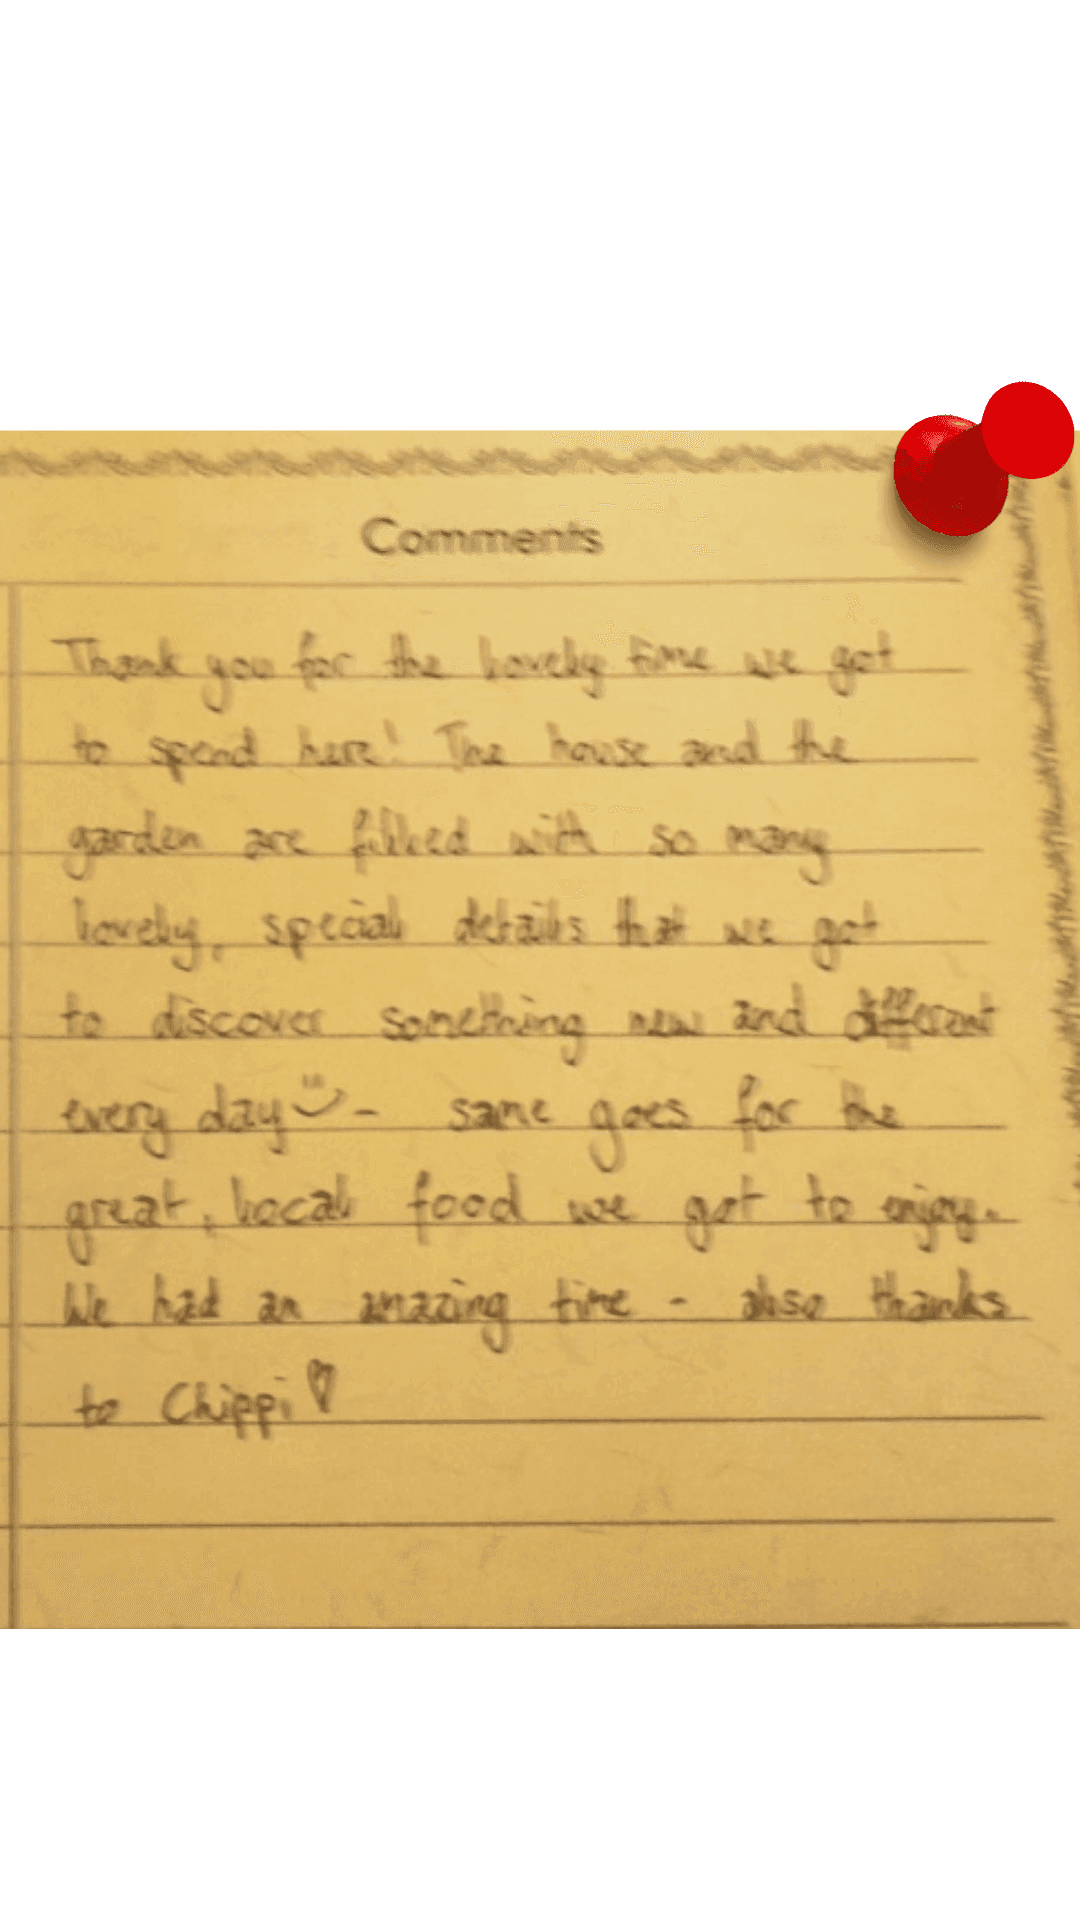 Comments
Thank you for the lovely time we got
to spend here! The house and the
garden are filled with so many
lovely, special details that we got
to discover something new and different
every day - same goes for the
great, local food we got to enjoy.
We had an amazing time - also thanks
to Chippi